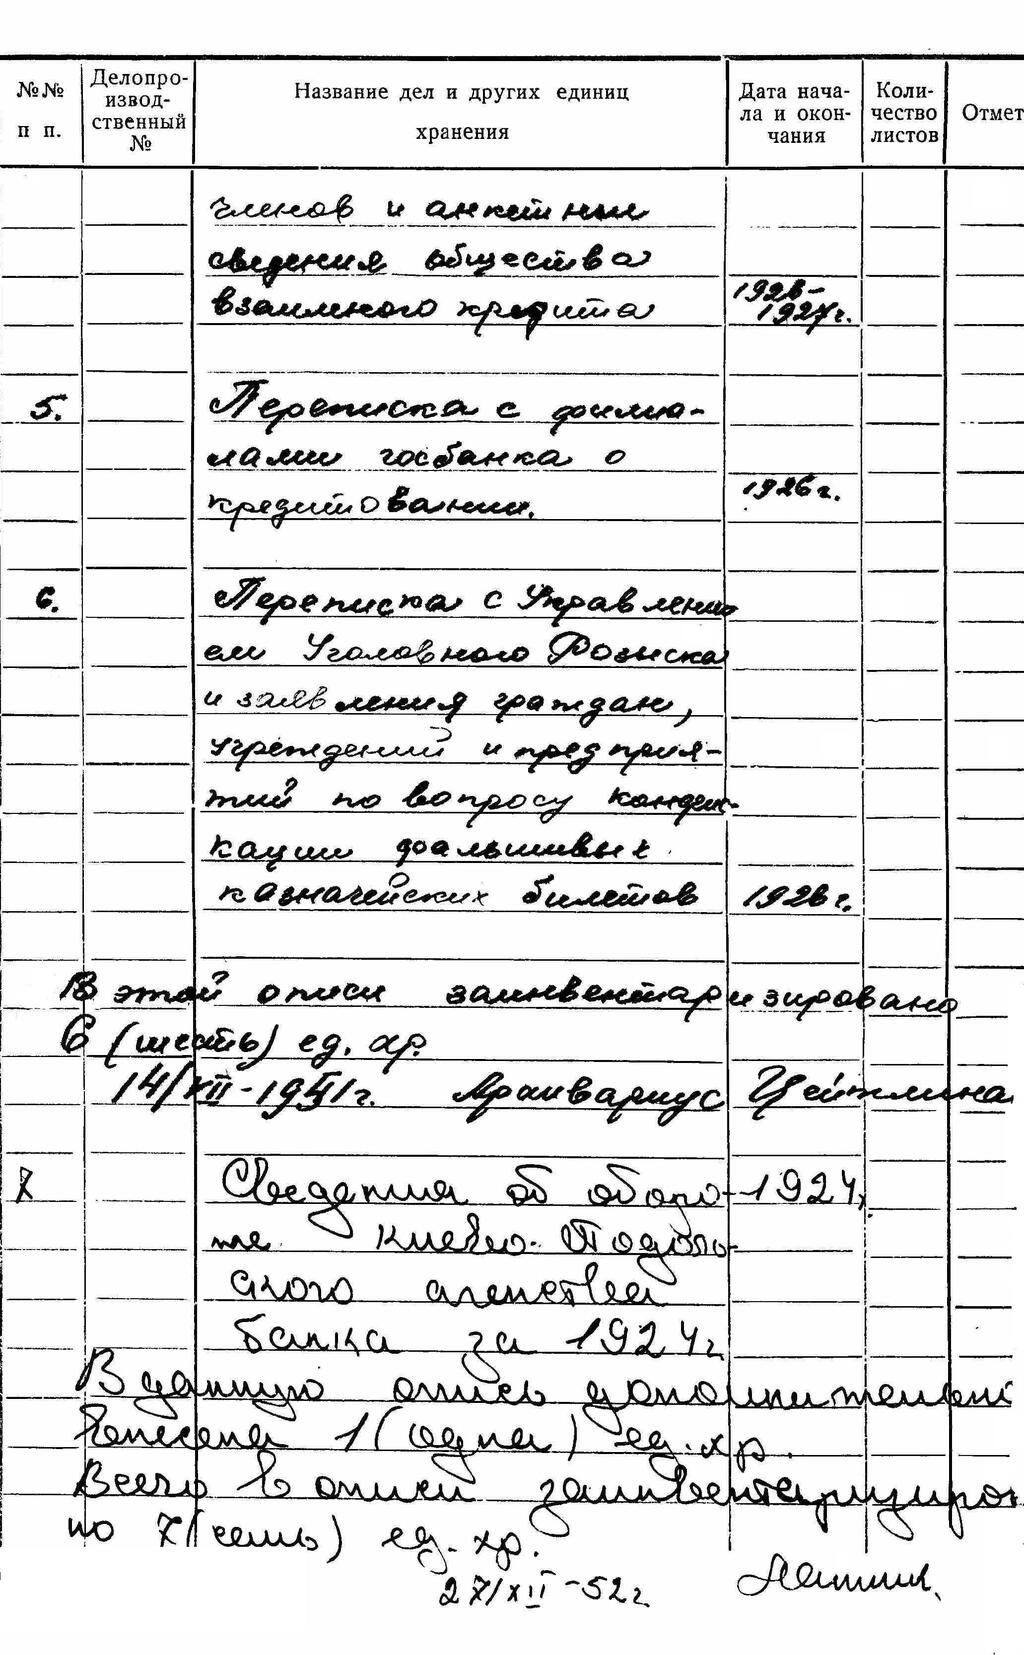 №№ п п.
Делопро-
извод-
ственный
№
Название дел и других единиц
хранения
Дата нача-
ла и окон-
чания
Коли-
чество
листов
Отмет
членов и анкетные
сведения общества
взаимного кредита
1926-
1927г.
5. Переписка с филиа-
лами госбанка о
кредитовании.
1926г.
6. Переписка с Управлени
ем Уголовного Розыска
и заявления граждан,
учреждений и предприя-
тий по вопросу
кации фальшивых
казначейских билетов 1926г.
В этой описи заинвентаризировано
6 (шесть) ед. хр.
14/XII-1951г. Архивариус Цейтлина
7 Сведения об оборо- 1924г.
те Киево-Подоль-
ского агенства
банка за 1924г.
В данную опись дополнительно
внесена 1 (одна) ед. хр.
Всего в описи заинвентаризиро
но 7 (семь) ед. хр.
27/XII-52г.